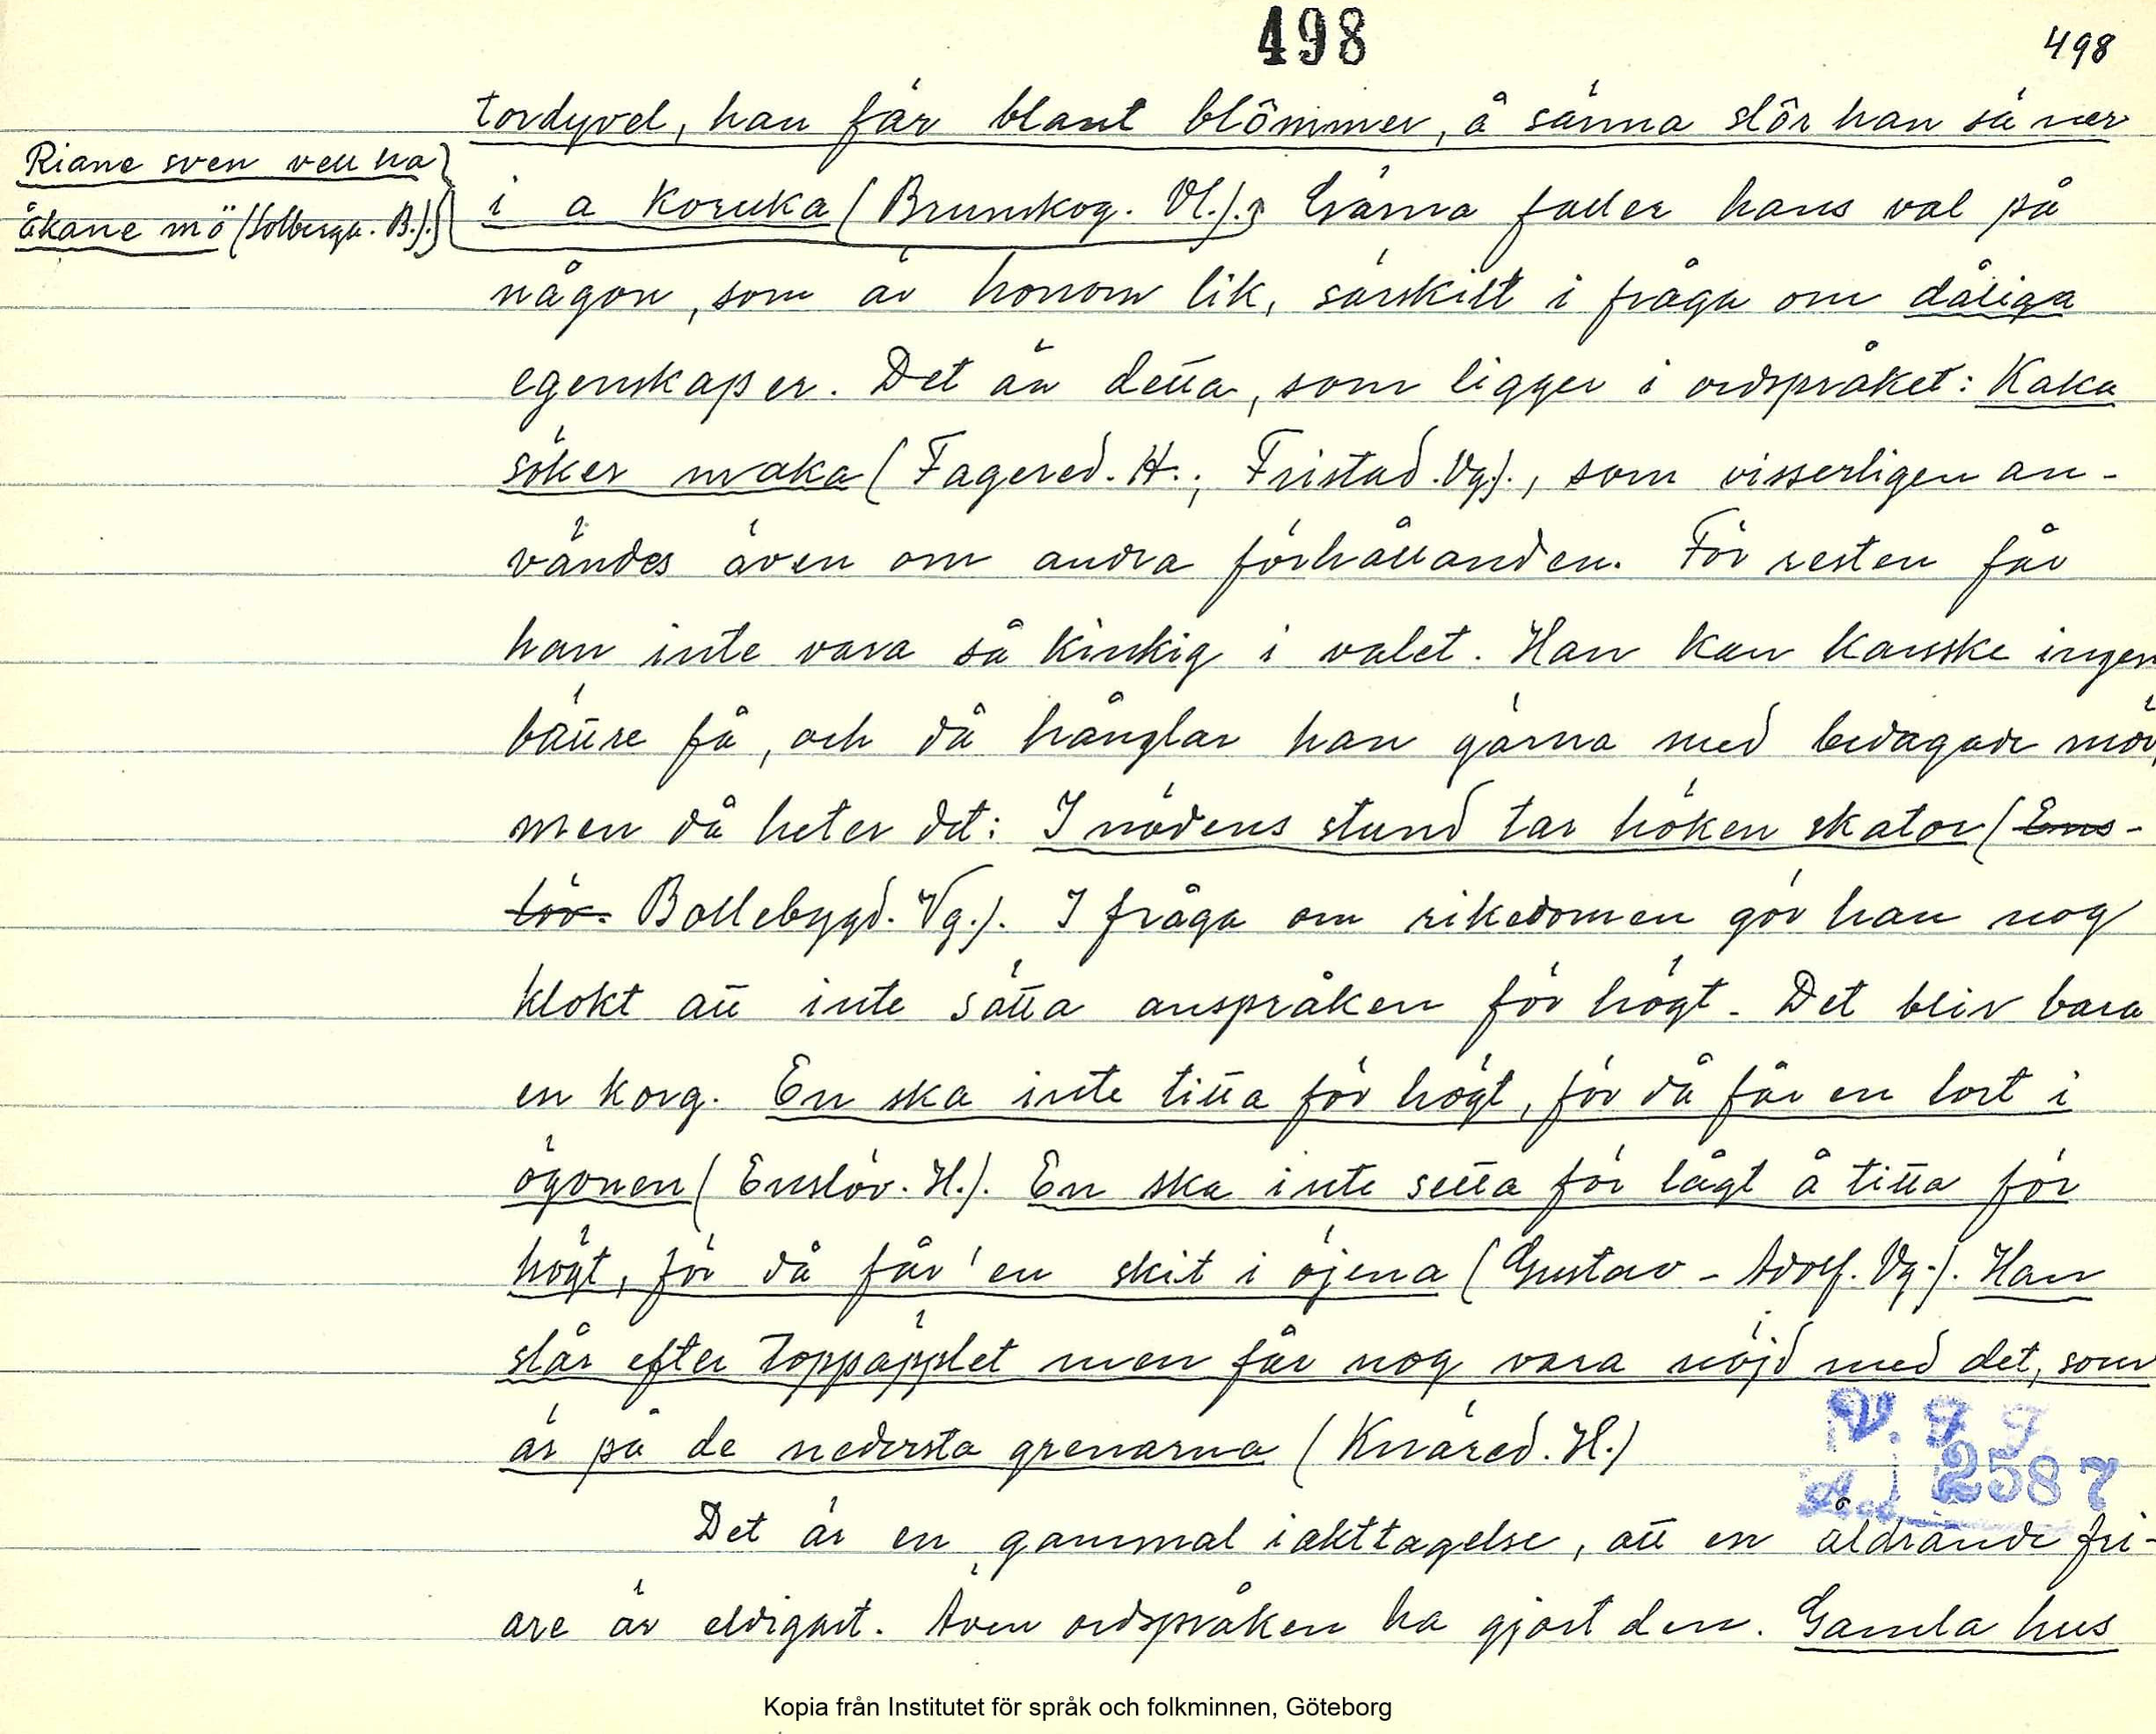 498
498
tordyvel, han får blant blömmer, å sänna slör han så ner
Riane sven vell ha
i a koruka (Brunskog. Vl.). Gärna faller hans val på
åkane mö (Solberga. B.).
någon, som är honom lik, särskilt i fråga om dåliga
egenskaper. Det är detta, som ligger i ordspråket: Kaka
söker maka (Fagered. H.; Fristad. Vg.)., som visserligen an-
vändes även om andra förhållanden. För resten får
han inte vara så kinkig i valet. Han kan kanske ingen
bättre få, och då hånglar han gärna med bedagade mör,
men då heter det: I nödens stund tar höken skator (Ens-
löv. Bollebygd. Vg.). I fråga om rikedomen gör han nog
klokt att inte sätta anspråken för högt. Det blir bara
en korg. En ska inte titta för högt, för då får en lort i
ögonen (Enslöv. H.). En ska inte setta för lågt å titta för
högt, för då får'en skit i öjena (Gustav-Adolf. Vg.). Han
slår efter toppäpplet men får nog vara nöjd med det, som
är på de nedersta grenarna (Knäred. H.)
2587
Det är en gammal iakttagelse, att en åldrande fri-
are är eldigast. Även ordspråken ha gjort den. Gamla hus
Kopia från Institutet för språk och folkminnen, Göteborg